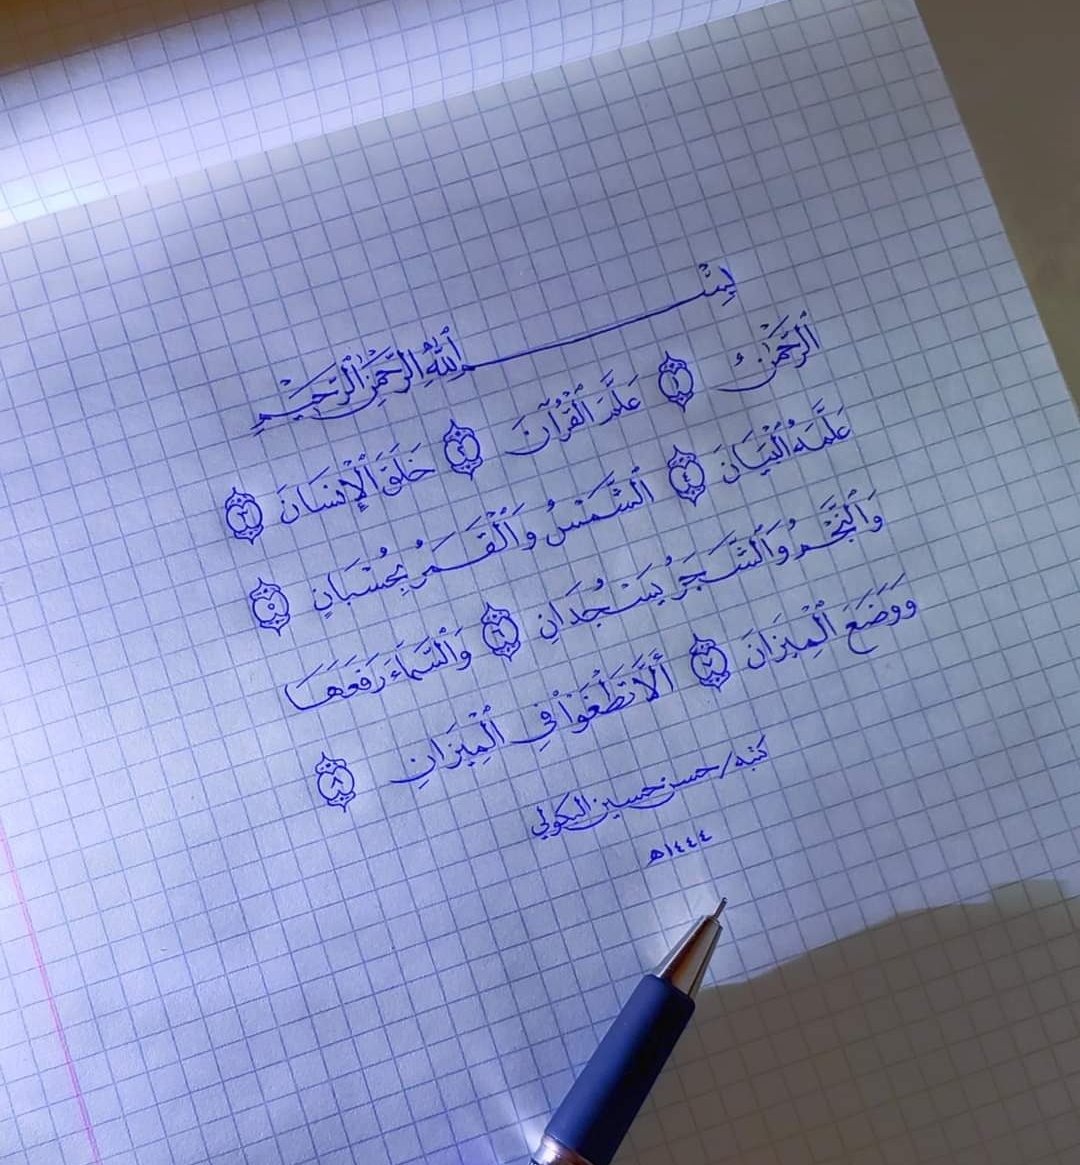 بِسْمِ ٱللَّهِ ٱلرَّحْمَٰنِ ٱلرَّحِيمِ
ٱلرَّحْمَٰنُ ١ عَلَّمَ ٱلْقُرْآنَ ٢ خَلَقَ ٱلْإِنْسَانَ ٣
عَلَّمَهُ ٱلْبَيَانَ ٤ ٱلشَّمْسُ وَٱلْقَمَرُ بِحُسْبَانٍ ٥
وَٱلنَّجْمُ وَٱلشَّجَرُ يَسْجُدَانِ ٦ وَٱلسَّمَاءَ رَفَعَهَا
وَوَضَعَ ٱلْمِيزَانَ ٧ أَلَّا تَطْغَوْا۟ فِي ٱلْمِيزَانِ ٨
كتبه / حسن حسين البكولي
١٤٤٤هـ